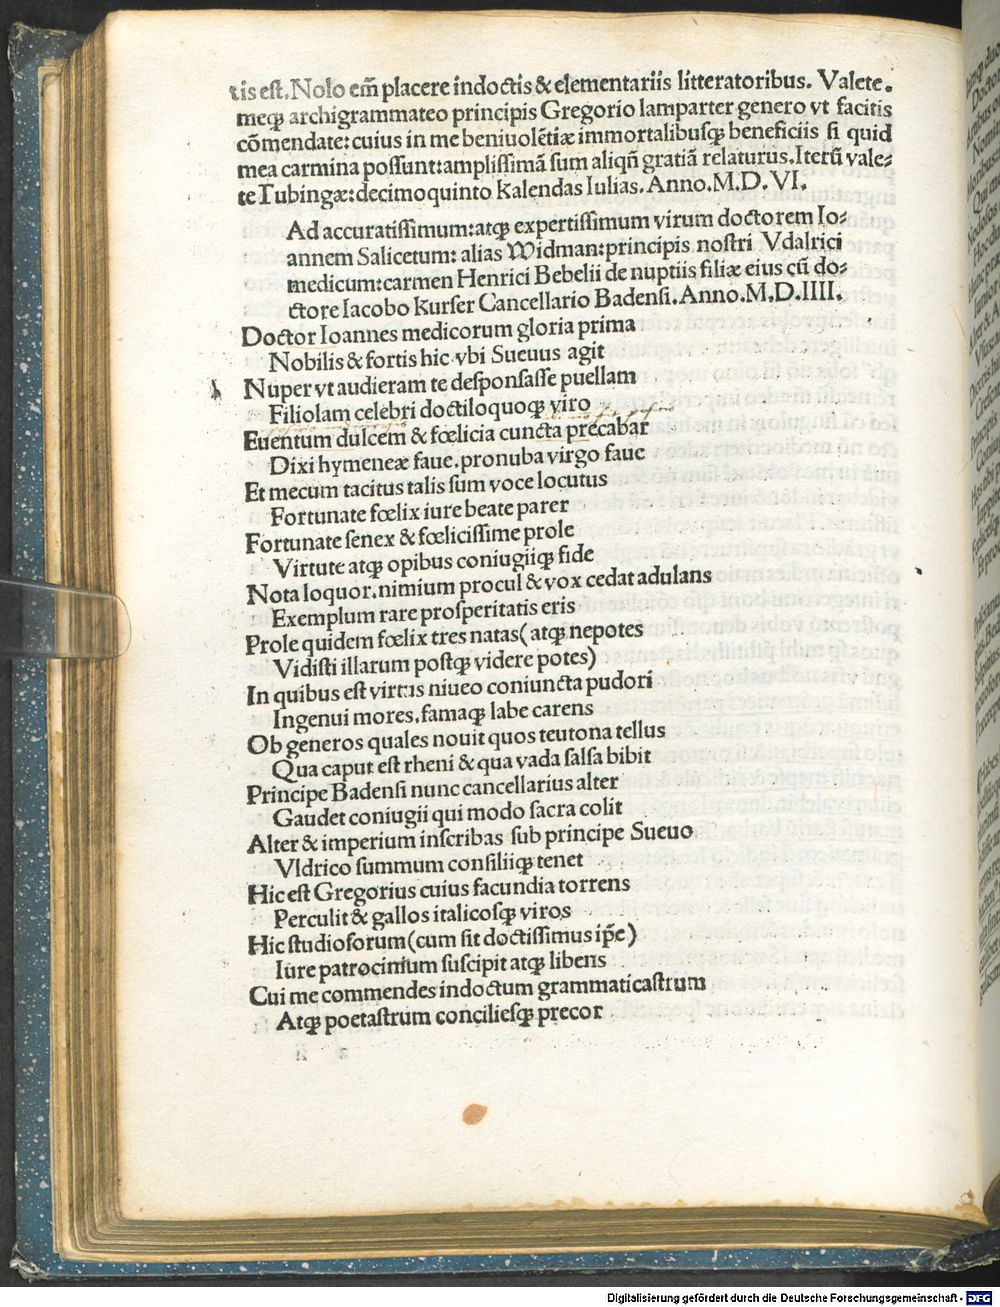 tis est. Nolo em̃ placere indoctis & elementariis litteratoribus. Valete.
meqꝫ archigrammateo principis Gregorio lamparter genero vt facitis
cõmendate: cuius in me beniuolẽtiæ immortalibusqꝫ beneficiis si quid
mea carmina possunt: amplissimã sum aliqñ gratiã relaturus. Iterũ vale⸗
te Tubingæ: decimoquinto kalendas Iulias. Anno. M. D. VI.
Ad accuratissimum: atqꝫ expertissimum virum doctorem Io⸗
annem Salicetum: alias Widman: principis nostri Vdalrici
medicum: carmen Henrici Bebelii de nuptiis filiæ eius cũ do⸗
ctore Iacobo kurser Cancellario Badensi. Anno. M. D. IIII.
Doctor Ioannes medicorum gloria prima
Nobilis & fortis hic vbi Sueuus agit
Nuper vt audieram te desponsasse puellam
Filiolam celebri doctiloquoqꝫ viro
Euentum dulcem & fœlicia cuncta precabar
Dixi hymenææ faue. pronuba virgo faue
Et mecum tacitus talis sum voce locutus
Fortunate fœlix iure beate parer
Fortunate senex & fœlicissime prole
Virtute atqꝫ opibus coniugiiqꝫ fide
Nota loquor. nimium procul & vox cedat adulans
Exemplum rare prosperitatis eris
Prole quidem fœlix tres natas (atqꝫ nepotes
Vidisti illarum postqꝫ videre potes)
In quibus est virtus niueo coniuncta pudori
Ingenui mores. famaqꝫ labe carens
Ob generos quales nouit quos teutona tellus
Qua caput est rheni & qua vada salsa bibit
Principe Badensi nunc cancellarius alter
Gaudet coniugii qui modo sacra colit
Alter & imperium inscribas sub principe Sueuo
Vldrico summum consiliiqꝫ tenet
Hic est Gregorius cuius facundia torrens
Perculit & gallos italicosqꝫ viros
Hic studiosorum (cum sit doctissimus ip̃e)
Iure patrocinium suscipit atqꝫ libens
Cui me commendes indoctum grammaticastrum
Atqꝫ poetastrum conciliesqꝫ precor
Digitalisierung gefördert durch die Deutsche Forschungsgemeinschaft - DFG